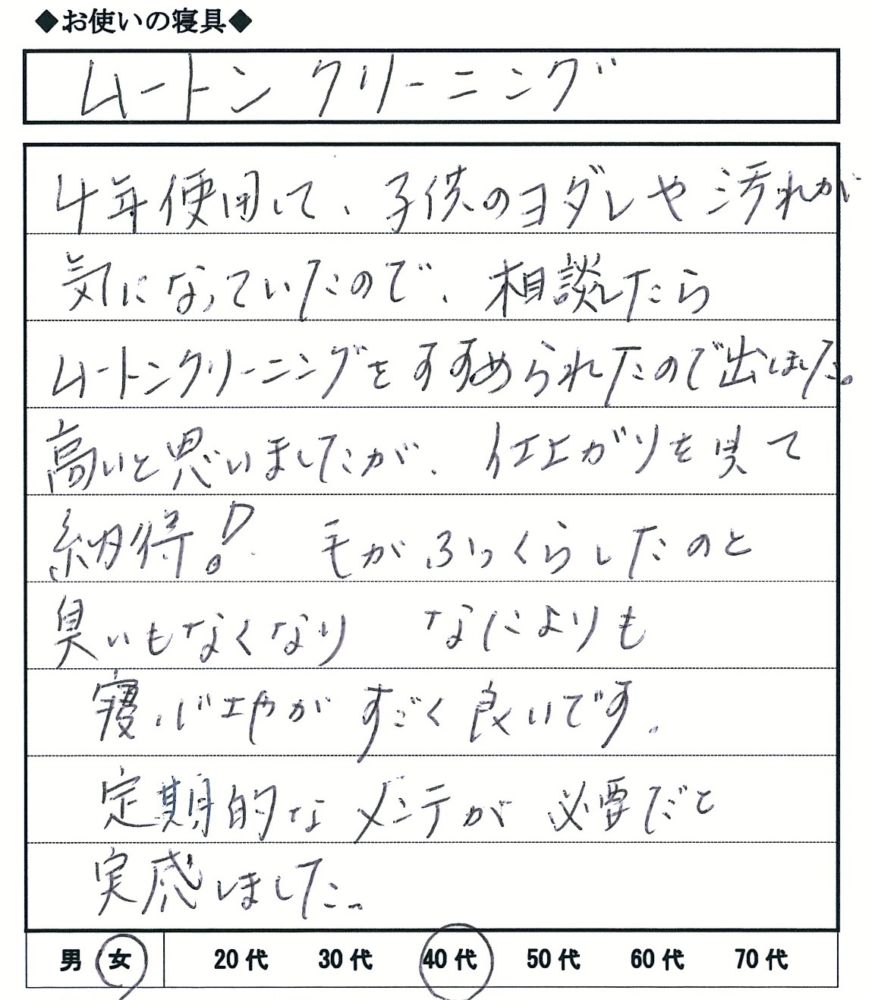 ◆お使いの寝具◆
ムートンクリーニング
4年使用して、子供のヨダレや汚れが
気になっていたので、相談したら
ムートンクリーニングをすすめられたので出しました。
高いと思いましたが、仕上がりを見て
納得!毛がふっくらしたのと
臭いもなくなり なによりも
寝心地がすごく良いです。
定期的なメンテが必要だと
実感しました。
男 女 20代 30代 40代 50代 60代 70代